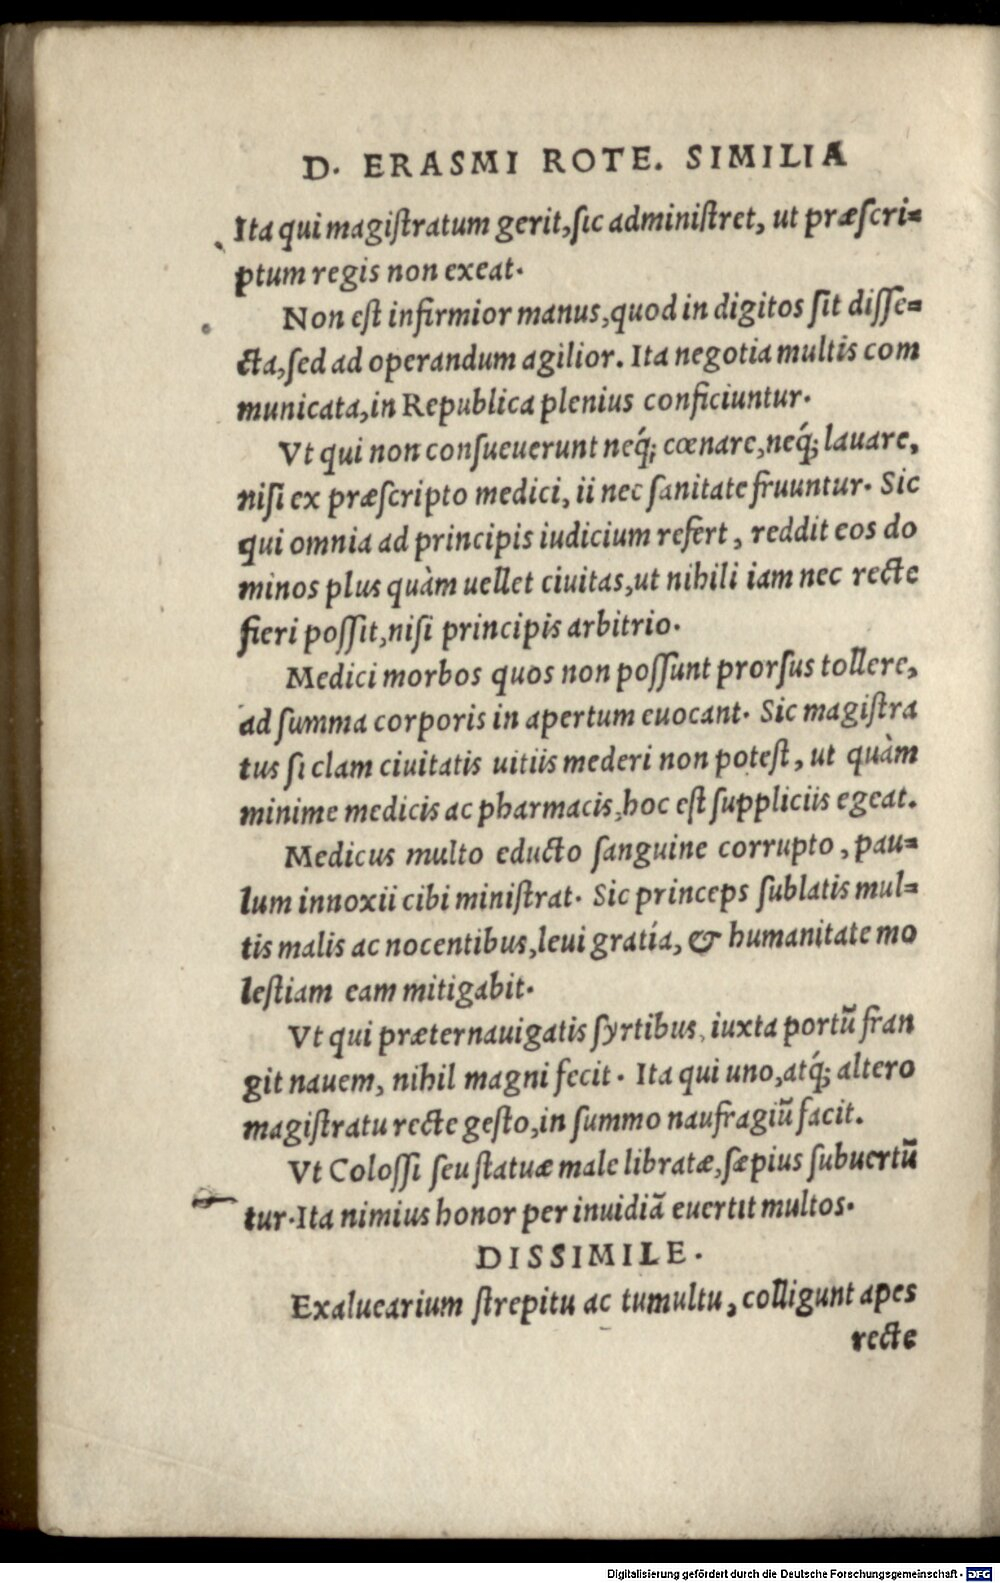 D. ERASMI ROTE. SIMILIA
Ita qui magiſtratum gerit,ſic adminiſtret, ut præſcri=
ptum regis non exeat.
Non eſt infirmior manus,quod in digitos ſit diſſe=
cta,ſed ad operandum agilior. Ita negotia multis com
municata,in Republica plenius conficiuntur.
Vt qui non conſueuerunt neq́; cœnare,neq́; lauare,
niſi ex præſcripto medici, ii nec ſanitate fruuntur. Sic
qui omnia ad principis iudicium refert, reddit eos do
minos plus quàm uellet ciuitas,ut nihili iam nec recte
fieri poſſit,niſi principis arbitrio.
Medici morbos quos non poſſunt prorſus tollere,
ad ſumma corporis in apertum euocant. Sic magiſtra
tus ſi clam ciuitatis uitiis mederi non poteſt, ut quàm
minime medicis ac pharmacis,hoc eſt ſuppliciis egeat.
Medicus multo educto ſanguine corrupto, pau=
lum innoxii cibi miniſtrat. Sic princeps ſublatis mul=
tis malis ac nocentibus,leui gratía, & humanitate mo
leſtiam eam mitigabit.
Vt qui præternauigatis ſyrtibus, iuxta portũ fran
git nauem, nihil magni fecit. Ita qui uno,atq́; altero
magiſtratu recte geſto,in ſummo naufragiũ facit.
Vt Coloſſi ſeu ſtatuæ male libratæ,ſæpius ſubuertũ
tur.Ita nimius honor per inuidiã euertit multos.
DISSIMILE.
Exaluearium ſtrepitu ac tumultu, colligunt apes
recte
Digitalisierung gefördert durch die Deutsche Forschungsgemeinschaft - DFG